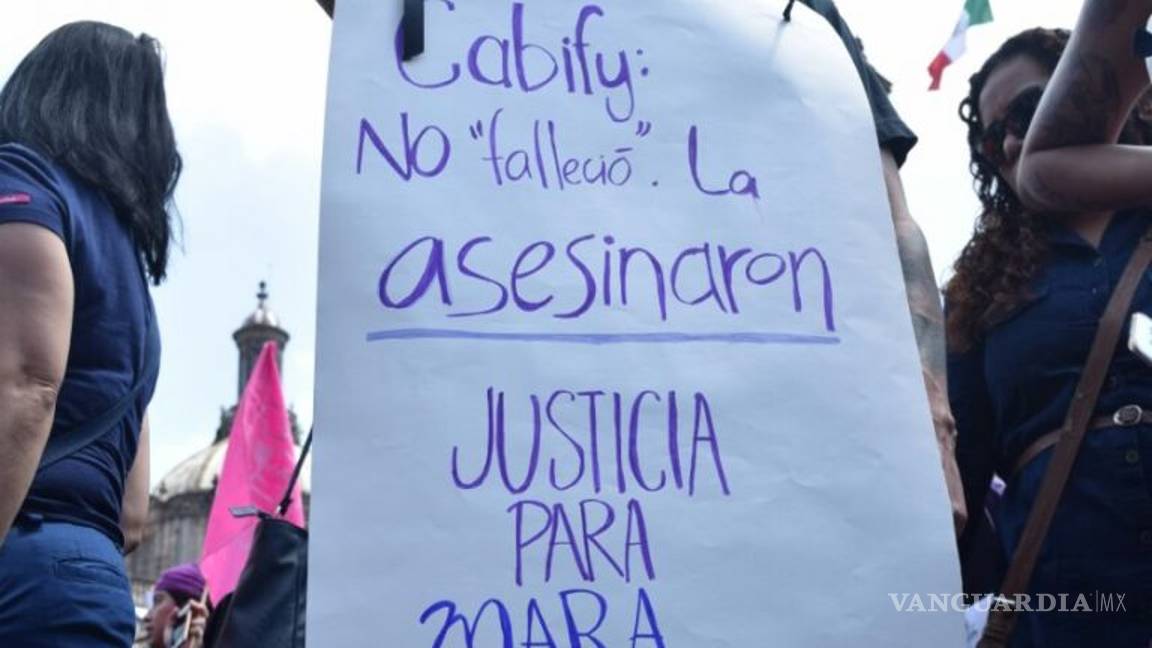 Cabify:
No "falleció". La
asesinaron
JUSTICIA
PARA
MARA
VANGUARDIA|MX